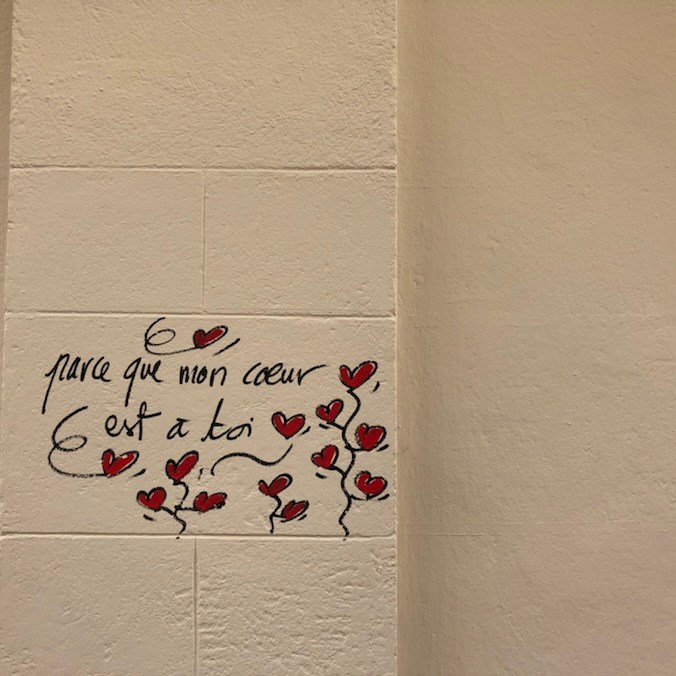 parce que mon cœur
est à toi